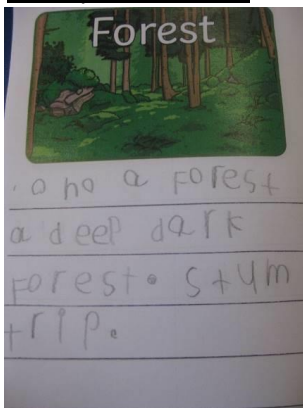 Forest
o ho a Forest
a deep dark
Forest. stum
trip.